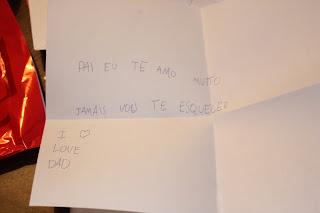 PAI EU TE AMO MUITO
JAMAIS VOU TE ESQUECER
I ♡
LOVE
DAD